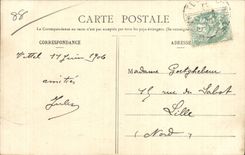 88
CARTE POSTALE
La Correspondance au recto n'est pas acceptée par tous les pays étrangers. (Se renseigner
CORRESPONDANCE
ADRESSE
Vittel 17 Juin 1906
amitiés
Jules
Madame
15 rue du Sabot
Lille
(Nord)